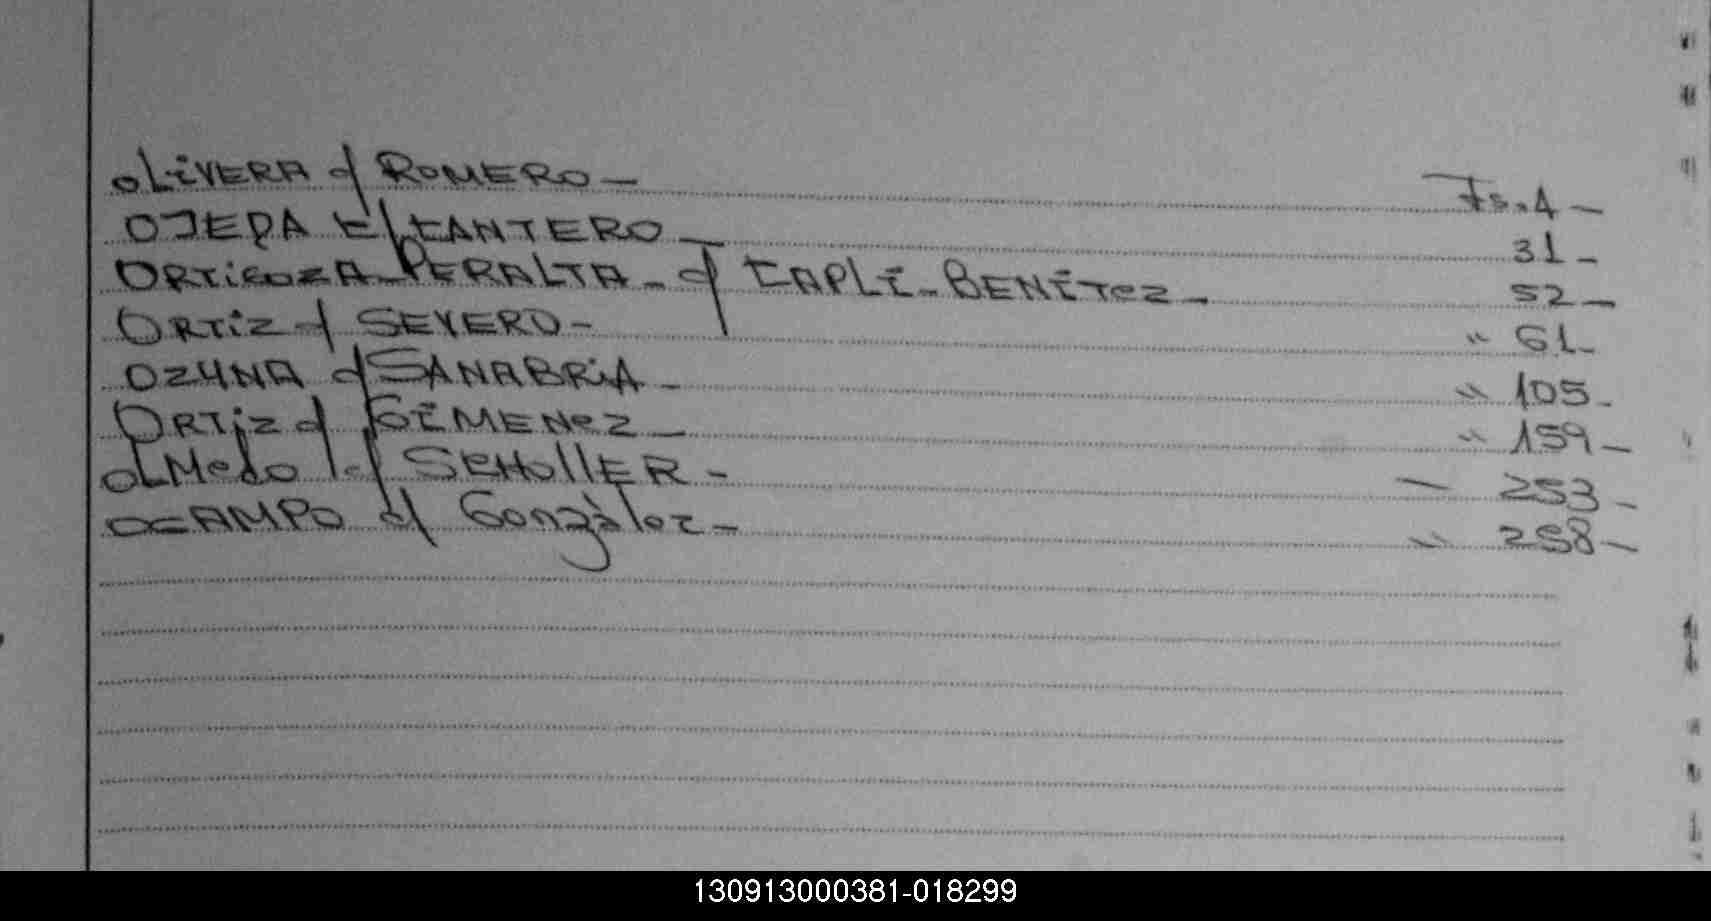 OLIVERA c/ ROMERO - Fs. 1 -
OJEDA c/ CANTERO - 31 -
ORTIGOZA - PERALTA - c/ CAPLI - BENITEZ - 52 -
ORTIZ c/ SEVERO - " 61 -
OZUNA c/ SANABRIA - " 105 -
ORTIZ c/ GIMENEZ - " 159 -
OLMEDO c/ SCHOLLER - " 253 -
OCAMPO c/ Gonzàlez - " 258 -
130913000381-018299